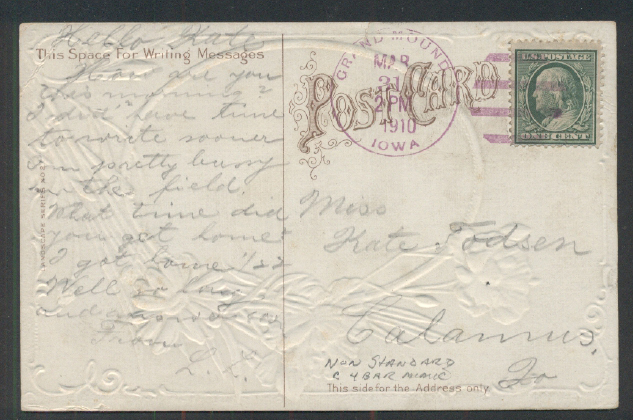 Hello Kate
This Space For Writing Messages
How are you
this morning?
I did't have time
to write sooner
am pretty bussy
in the field.
What time did
you get home?
I got home 1/2 2
Well so long
and answer
From
L. L.
POST CARD
GRAND MOUND
MAR
21
2 PM
1910
IOWA
U.S. POSTAGE
ONE CENT
Miss
Kate Todsen
Calamus,
Io
NON STANDARD
C 4 BAR MIMIC
This side for the Address only